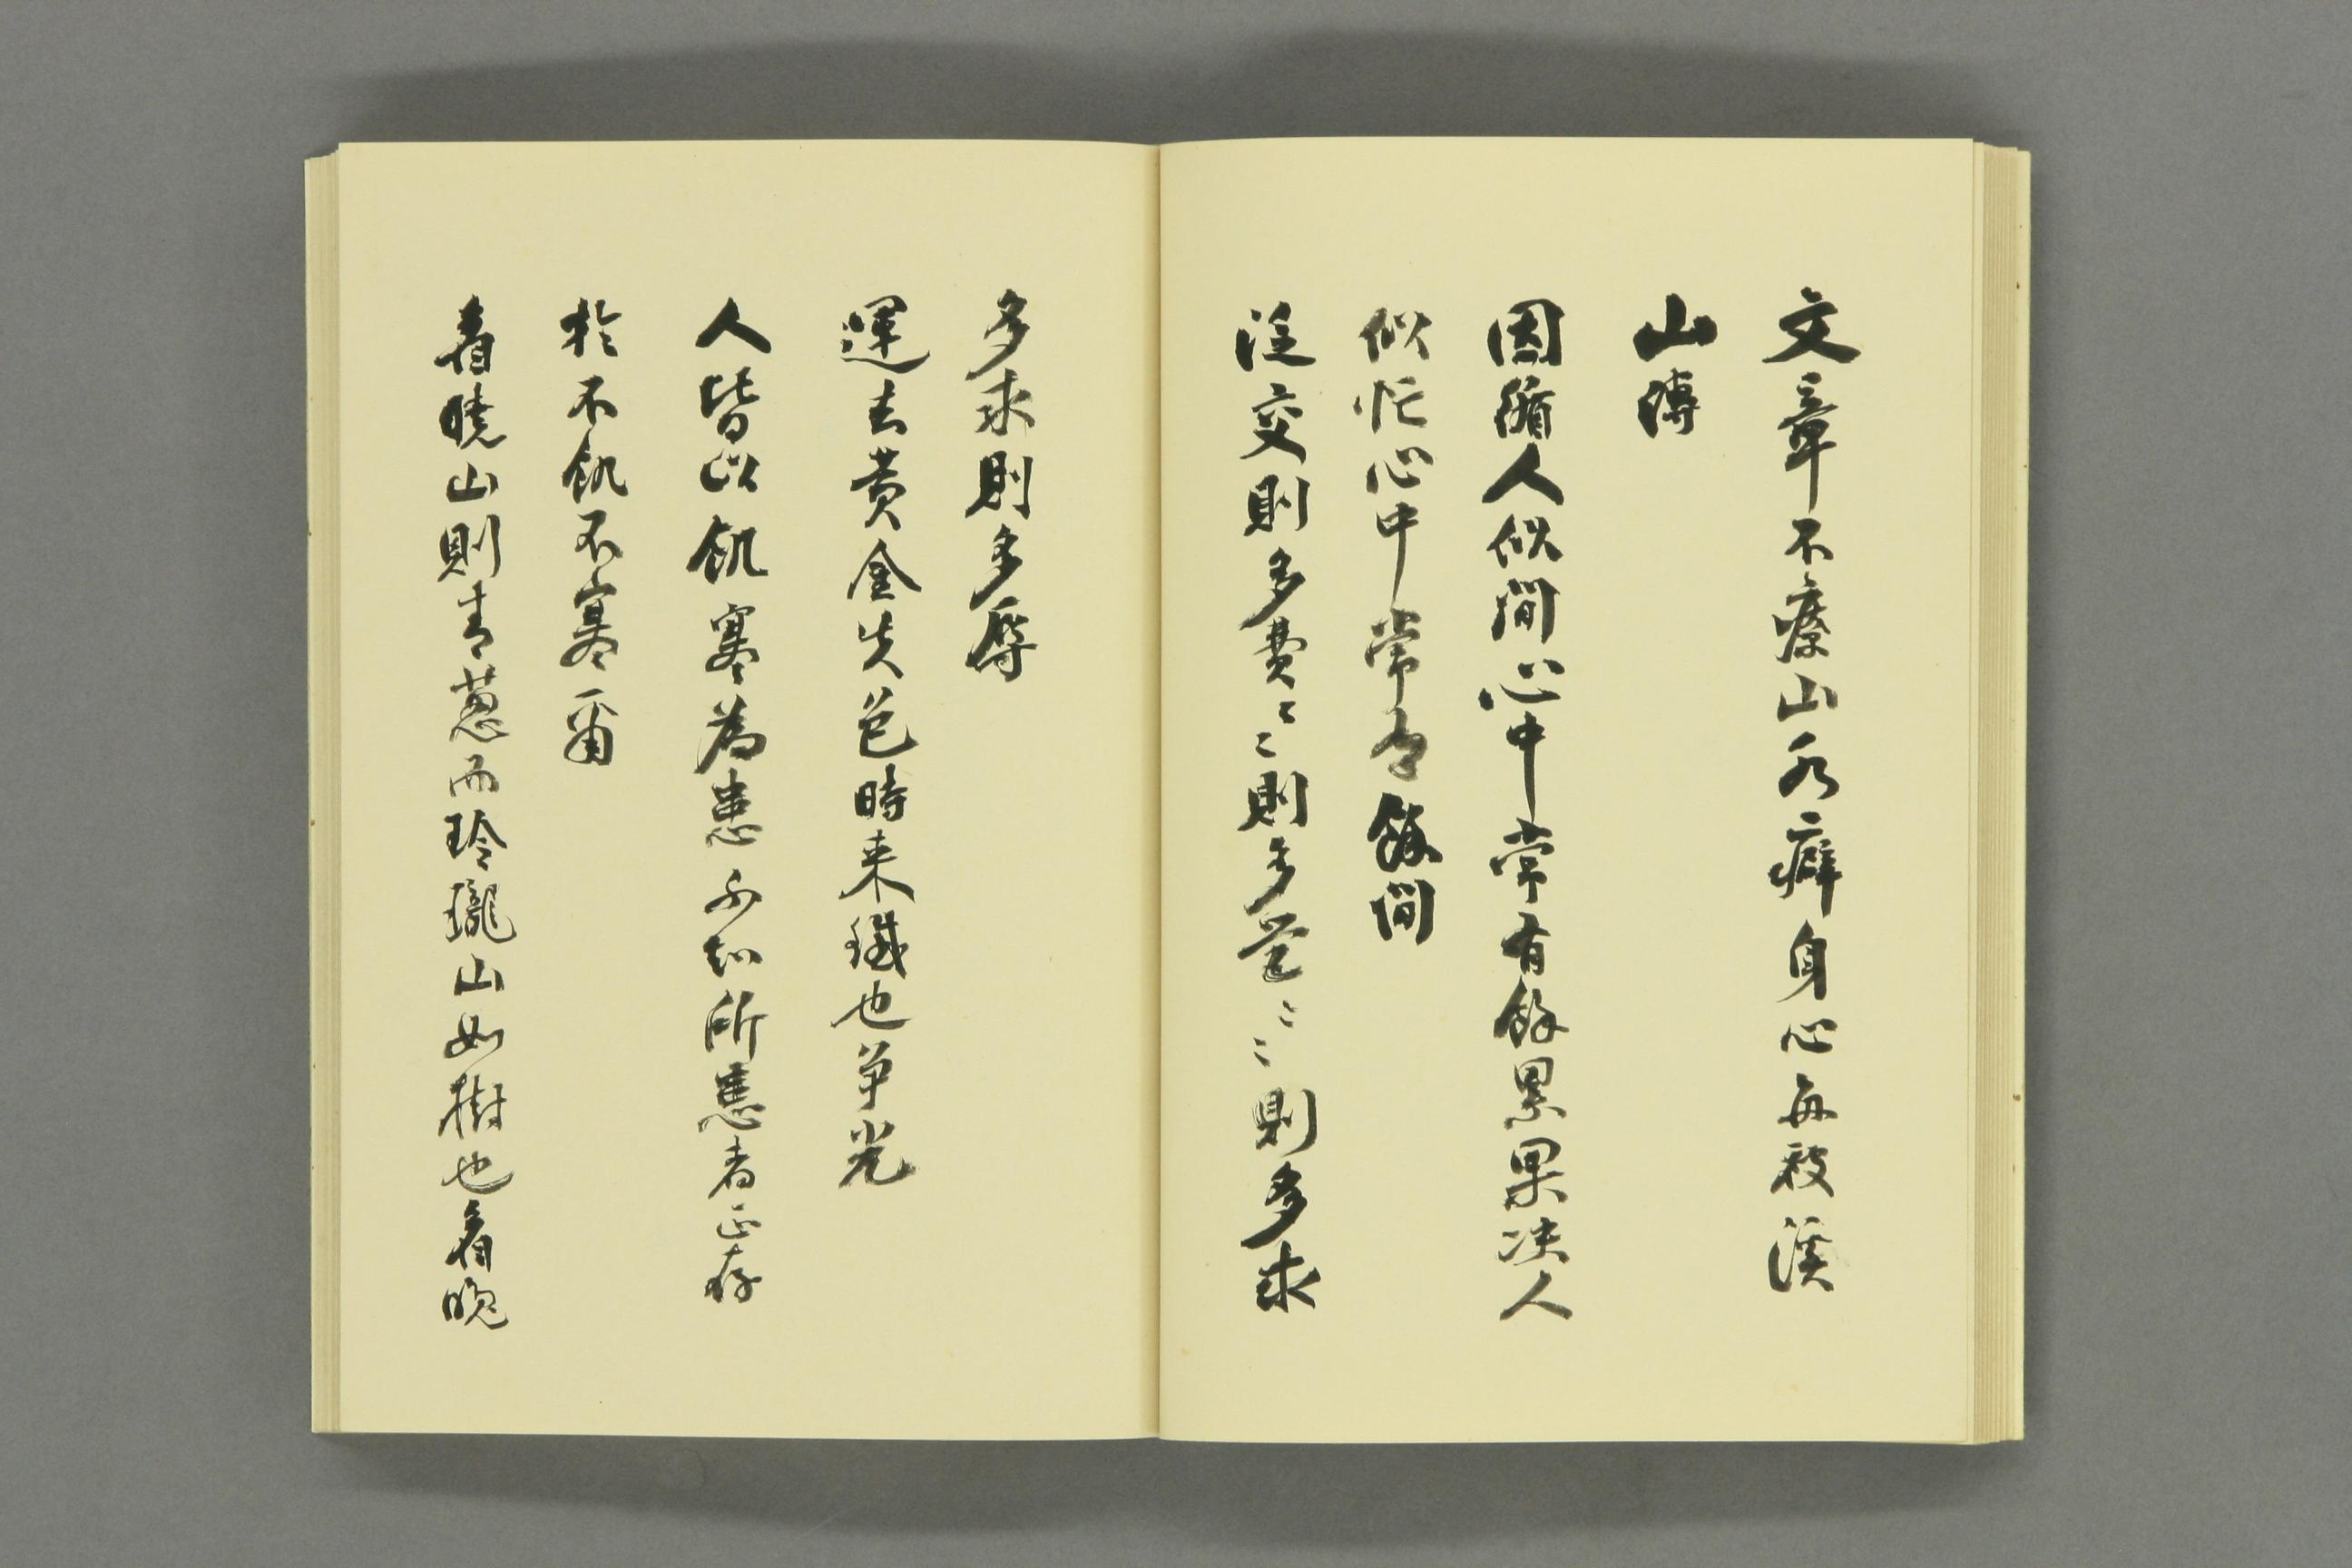 文章不療山水癖身心每被溪
山縛
因循人似閒心中常有餘累果决人
似忙心中常有餘閒
泛交則多費〻〻則多營〻〻則多求
多求則多辱
運去黄金失色時来鐵也争光
人皆以飢寒為患不知所患者正存
於不飢不寒爾
看曉山則青蔥而玲瓏山如樹也看晚